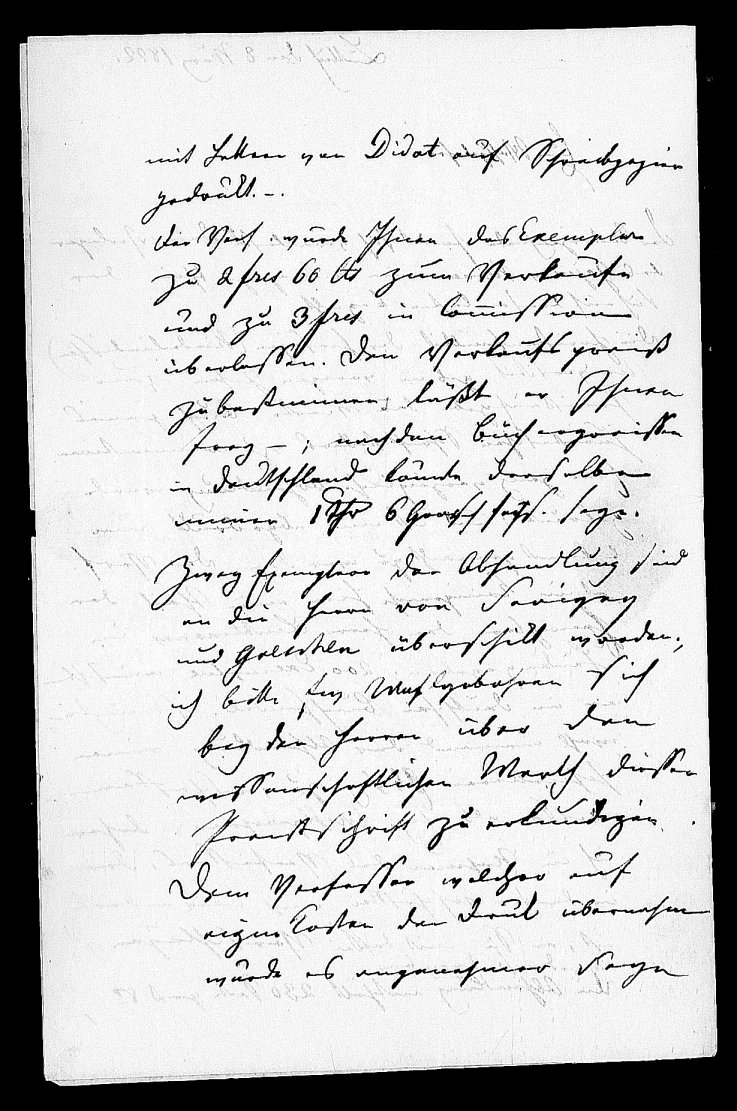 mit Lettern von Didot auf Schreibpapier
gedrukt. –.
Der Verf würde Ihnen das Exemplar
zu 2 frcs 60 Cts zum Verkaufe
und zu 3 frcs in Commission
überlassen. Den Verkaufspreiß
zu bestimmen, läßt er Ihnen
frey – ; nach den Bücherpreissen
in Deutschland könnte derselbe
immer 1 Thr 6 Gros sächs. seyn.
Zwey Exemplare der Abhandlung sind
an die Herrn von Savigny
und Goeschen überschikt worden;
ich bitte Ew Wohlgebohren sich
bey den Herren über den
wissenschaftlichen Werth dieser
Preisschrift zu erkundigen.
Dem Verfasser welcher auf
eigne Kosten den Druk übernahm
würde es angenehmer seyn